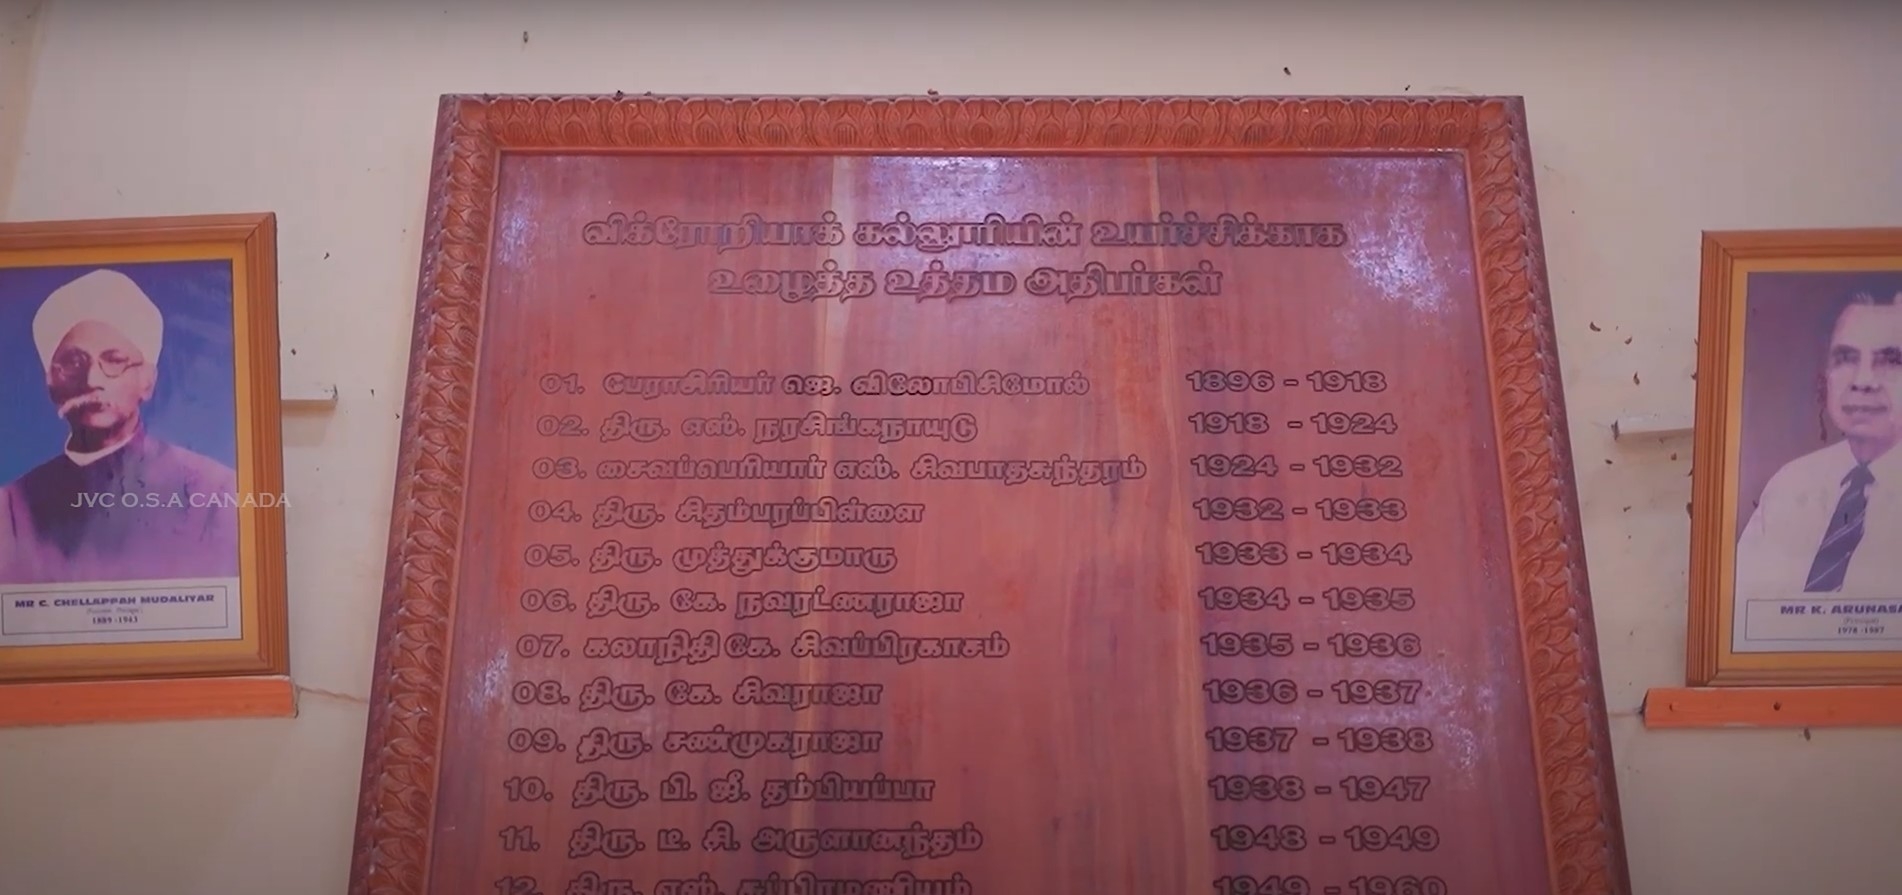 விக்ரோறியாக் கல்லூரியின் உயர்ச்சிக்காக
உழைத்த உத்தம அதிபர்கள்
01. பேராசிரியர் ஜெ. விலோபிசிமோல் 1896 - 1918
02. திரு. எஸ். நரசிங்கநாயுடு 1918 - 1924
03. சைவப்பெரியார் எஸ். சிவபாதசுந்தரம் 1924 - 1932
04. திரு. சிதம்பரப்பிள்ளை 1932 - 1933
05. திரு. முத்துக்குமாரு 1933 - 1934
06. திரு. கே. நவரட்ணராஜா 1934 - 1935
07. கலாநிதி கே. சிவப்பிரகாசம் 1935 - 1936
08. திரு. கே. சிவராஜா 1936 - 1937
09. திரு. சண்முகராஜா 1937 - 1938
10. திரு. பி. ஜீ. தம்பியப்பா 1938 - 1947
11. திரு. டீ. சி. அருளானந்தம் 1948 - 1949
12. திரு. எஸ். சுப்பிரமணியம் 1949 - 1960
JVC O.S.A CANADA
MR C. CHELLAPPAH MUDALIYAR
1889 -1943
MR K.
1978 -1987